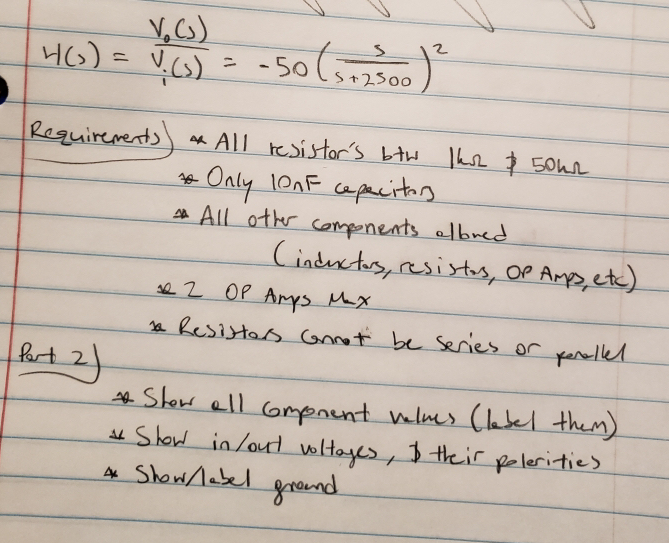 H(s) = V₀(s) / Vᵢ(s) = -50 ( s / s+2500 )²
Requirements) * All resistor's btw 1kΩ & 50kΩ
* Only 10nF capacitors
* All other components allowed
(inductors, resistors, OP Amps, etc)
* 2 OP Amps Max
* Resistors cannot be series or parallel
Part 2)
* Show all component values (label them)
* Show in/out voltages, & their polarities
* Show/label ground